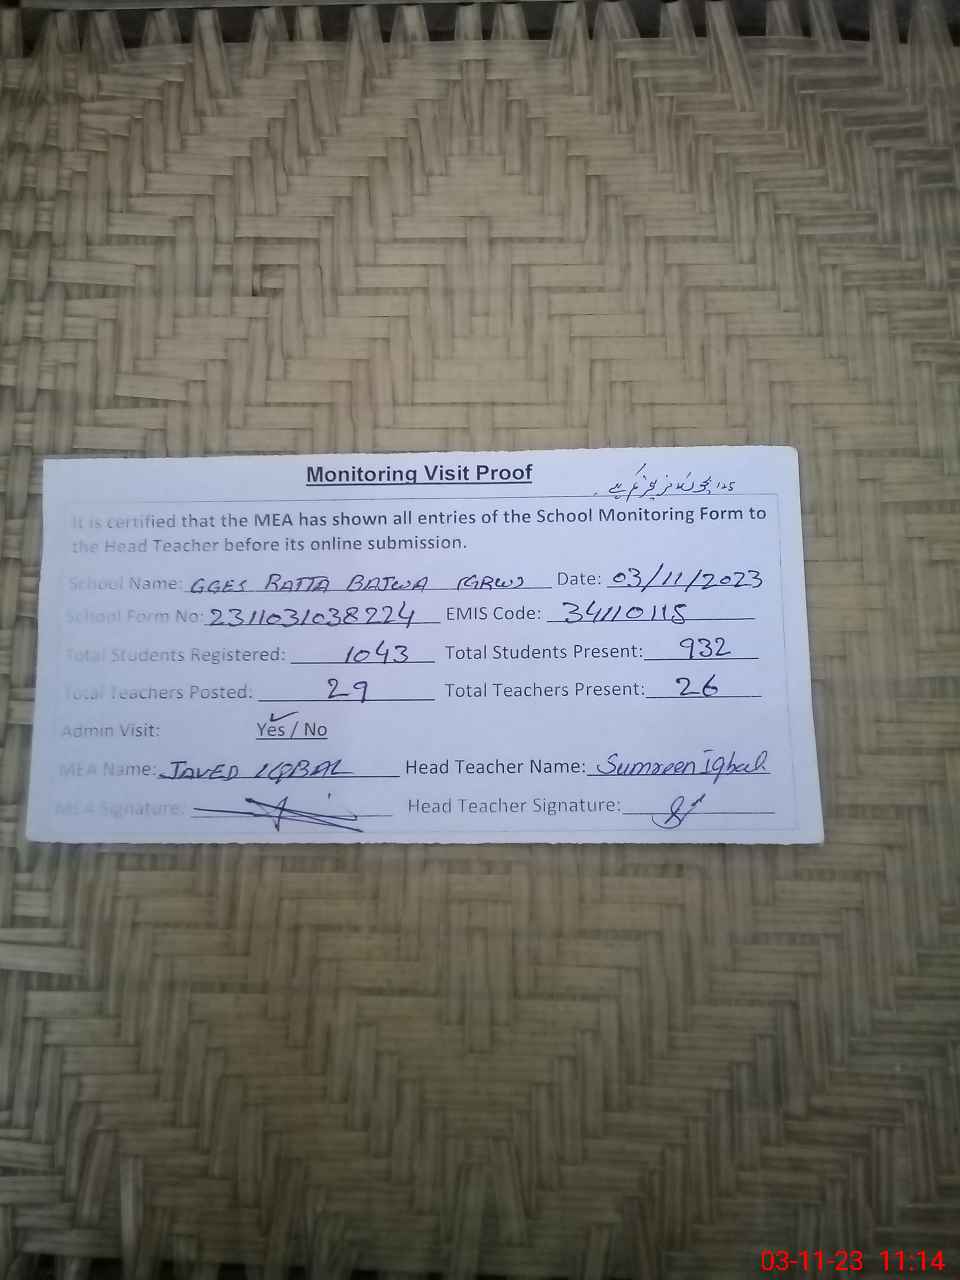 Monitoring Visit Proof
It is certified that the MEA has shown all entries of the School Monitoring Form to
the Head Teacher before its online submission.
School Name: GGES RATTA BAJWA (GRW) Date: 03/11/2023
School Form No: 2311031038224 EMIS Code: 34110115
Total Students Registered: 1043 Total Students Present: 932
Total Teachers Posted: 29 Total Teachers Present: 26
Admin Visit: Yes / No
MEA Name: JAVED IQBAL Head Teacher Name: Sumreen Iqbal
MEA Signature: Head Teacher Signature:
03-11-23 11:14